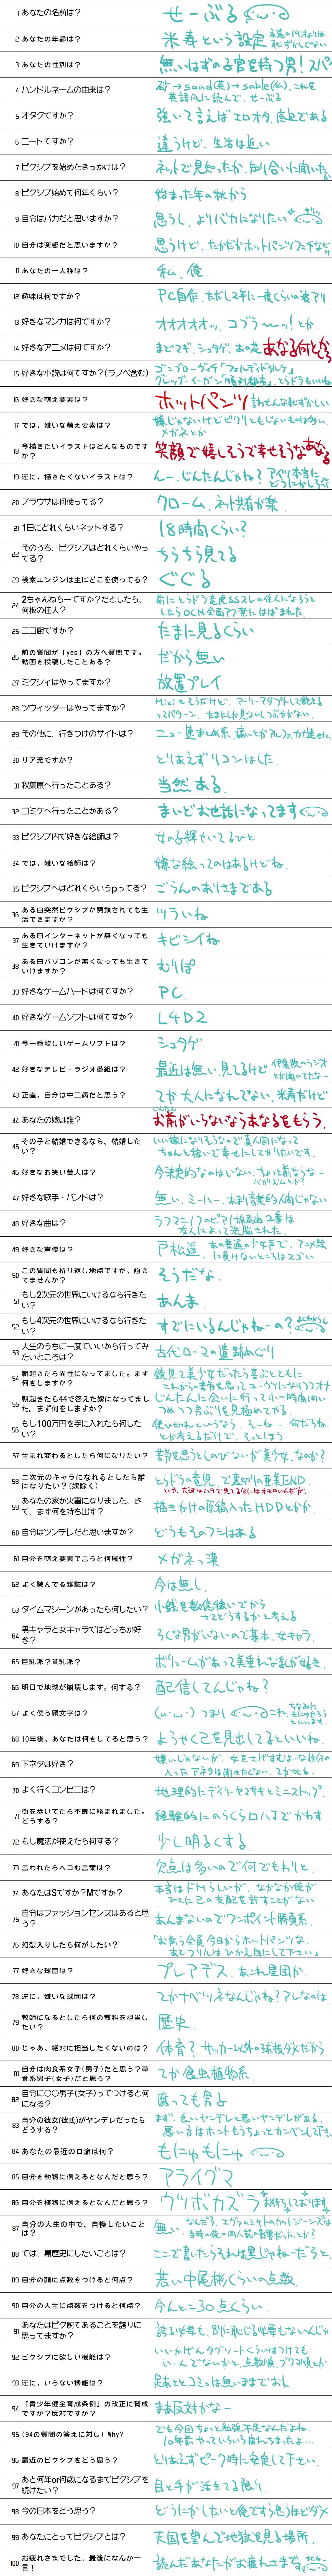 1 あなたの名前は?
せーぶる
2 あなたの年齢は?
米寿という設定 永遠の19才よりは恥ずかしくない
3 あなたの性別は?
無いはずの子宮を持つ男!スパ
4 ハンドルネームの由来は?
砂→sand(英)→sable(仏)、これを英語風に読んで、せーぶる
5 オタクですか?
強いて言えばエロオタ、底辺である
6 ニートですか?
違うけど、生活は近い
7 ピクシブを始めたきっかけは?
ネットで見知ったか、知り合いに聞いたか
8 ピクシブ始めて何年くらい?
始まった年の秋から
9 自分はバカだと思いますか?
思うし、よりバカになりたい
10 自分は変態だと思いますか?
思うけど、たかだかホットパンツフェチなだけ
11 あなたの一人称は?
私、俺
12 趣味は何ですか?
PC自作、ただし2年に一度くらいの波アリ
13 好きなマンガは何てすか?
オオオオォッ、コブラ~ッ!とか、
14 好きなアニメは何てすか?
まどマギ、シュタゲ、あの花
15 好きな小説は何てすか?(ラノベ含む)
16 好きな萌え要素は?
ホットパンツ 言わせんな恥ずかしい
17 では、嫌いな萌え要素は?
嫌じゃないけどピクリともしないものは多い、メガネとか
18 今描きたいイラストはどんなものですか?
笑顔で嬉しそうで幸せそうな
19 逆に、描きたくないイラストは?
んー、じんたんじゃね?アイツ本当にどうにかしろ
20 ブラウサは何使ってる?
クローム、ネット共有が楽、
21 1日にどれくらいネットする?
18時間くらい?
22 そのうち、ピクシブはどれくらいやってる?
ちらちら見てる
23 検索エンジンは主にどこを使ってる?
ぐぐる
24 2ちゃんねらーてすか?だとしたら、何板の住人?
前にとらドラ竜虎SSスレの住人になろうとしたらOCN全面アク禁にはばまれた、
25 ニコ厨てすか?
たまに見るくらい
26 前の質問が「yes」の方へ質問です。動画を投稿したことある?
だから無い
27 ミクシィはやってますか?
放置プレイ
28 ツウィッターはやってますか?
mixiもそうだけど、アーリーアダプトして飽きるってパターン、たまにしか見ないしつぶやかない、
29 その他に、行きつけのサイトは?
30 リア充ですか?
とりあえずリコンはした、
31 秋葉原へ行ったことある?
当然ある、
32 コミケへ行ったことがある?
まいどお世話になってます
33 ピクシブ内て好きな絵師は?
女の子輝やいてるひと
34 では、嫌いな絵師は?
嫌な絵ってのはあるけどね、
35 ピクシブへはどれくらいうpってる?
ごらんのありさまである
36 ある日突然ピクシブが閉鎖されても生活できますか?
ツラいね
37 ある日インターネットが無くなっても生きていけますか?
キビシイね
38 ある日パソコンが無くなっても生きていけますか?
むりぽ
39 好きなゲームハードは何てすか?
PC、
40 好きなゲームソフトは何てすか?
L4D2
41 今一番欲しいゲームソフトは?
シュタゲ
42 好きなテレビ・ラジオ番組は?
最近は無い、見てるけど 伊集院のラジオとか聞いてたな~
43 正直、自分は中二病だと思う?
てか大人になれてない、米寿だけど
44 あなたの嫁は誰?
お前がいらないならあなるをもらう、
45 その子と結婚できるなら、結婚したい?
いい嫁になりそうなので真人間になってちゃんと稼いで幸せにしてやりたいです、
46 好きなお笑い芸人は?
47 好きな歌手・バンドは?
無い、ミーハー、あまり音楽的人間じゃない
48 好きな曲は?
ラフマニノフのピアノ協奏曲2番は友人によって洗脳された、
49 好きな声優は?
戸松遥、あの普通の少女声で、アニメ絵に負けないところはスゴい、
50 この質問も折り返し地点ですが、飽きてませんか?
そうだな、
51 もし2次元の世界にいけるなら行きたい?
あんま、
52 もし4次元の世界にいけるなら行きたい?
すでにいるんじゃねーの?
53 人生のうちに一度ていいから行ってみたいところは?
古代ローマの遺跡めぐり
54 朝起きたら異性になってました。まず何をしますか?
55 朝起きたら44で答えた嫁になってました。まず何をしますか?
56 もし100万円を手に入れたら何したい?
57 生まれ変わるとしたら何になりたい?
苦労を思うとしのびないが美少女、なのか?
58 二次元のキャラになれるとしたら誰になりたい?(嫁除く)
とらドラの竜児、で裏切りの亜美END、
59 あなたの家が火事になりました。さて、まず何を持ち出す?
描きかけの原稿入ったHDDとかか、
60 自分はツンデレだと思いますか?
どうもそのフシはある
61 自分を萌え要素で言うと何属性?
メガネっ漢
62 よく読んてる雑誌は?
今は無し、
63 タイムマシーンがあったら何したい?
小銭を数億稼いでからさてどうするかと考える、
64 男キャラと女キャラてはどっちが好き?
ろくな男がいないので基本、女キャラ、
65 巨乳派?貧乳派?
ボリュームがあって美乗れな乱が好き、
66 明日て地球が崩壊します。何する?
配信してんじゃね?
67 よく使う顔文字は?
(u・ω・)つまり これ、
68 10年後、あなたは何をしてると思う?
ようやく己を見出してるといいね、
69 下ネタは好き?
70 よく行くコンビニは?
地理的にデイリーヤマザキとミニストップ、
71 街を歩いてたら不良に絡まれました。どうする?
経験的にのらくらロハでかわす
72 もし魔法が使えたら何する?
少し明るくする、
73 言われたらヘコむ言葉は?
欠点は多いので何でもわりと、
74 あなたはSてすか?Mてすか?
本当はドMらしいが、なかなか俺がひとに己の支配を許すことがない
75 自分はファッションセンスはあると思う?
あんまないのでワンポイント勝負系、
76 幻想入りしたら何がしたい?
「お前ら全員今日からホットパンツな、あとフリルはひかえ目にして下さい」
77 好きな球団は?
プレアデス、あこれ星団か、
78 逆に、嫌いな球団は?
てかナベツネなんじゃね?アレなのは、
79 教師になるとしたら何の教科を担当したい?
歴史、
80 じゃあ、絶対に担当したくないのは?
体育?サッカー以外の球技ダメだから
81 自分は肉食系女子(男子)だと思う?草食系男子(女子)だと思う?
てか食虫植物系、
82 自分に○○男子(女子)ってつけると何になる?
腐っても男子
83 自分の彼女(彼氏)がヤンデレだったらどうする?
まず、良いヤンデレと悪いヤンデレがある、悪い方はホントもうちょっとカンベンして下さい
84 あなたの最近の口癖は何?
もにゅもにゅ
85 自分を動物に例えるとなんだと思う?
アライグマ
86 自分を植物に例えるとなんだと思う?
ウツボカズラ お待ちしております
87 自分の人生の中で、自慢したいことは?
無い、
88 ては、黒歴史にしたいことは?
ここで書いたらそれは黒じゃねーだろと、
89 自分の顔に点数をつけると何点?
若い中尾彬くらいの点数、
90 自分の人生に点数をつけると何点?
今んとこ30点くらい、
91 あなたはピク厨てあることを誇りに思ってますか?
誇る必要も、別に恥じる必要もないんじゃ
92 ピクシブに欲しい機能は?
いいかげんタグソートくらいはつけてもいーんでないかと、点数順、ブクマ順とか
93 逆に、いらない機能は?
足あととコミュは無いままでおk、
94 「青少年健全育成条例」の改正に賛成ですか?反対ですか?
まあ反対かなー
95 (94の質問の答えに対し)Why?
でも今日ちょっと勉強不足なんだよね、10年前やっていろいろ疲れちまったよ…、
96 最近のピクシブをどう思う?
とりあえずピーク時に発見して下さい、
97 あと何年or何歳になるまてピクシブを続けたい?
目と手が活きてる限り、
98 今の日本をどう思う?
どうにかしたいと俺ですら思うほどダメ
99 あなたにとってピクシブとは?
天国を望んで地獄を見る場所、
100 お疲れさまてした。最後になんか一言!
読んだあなたがお疲れさまです